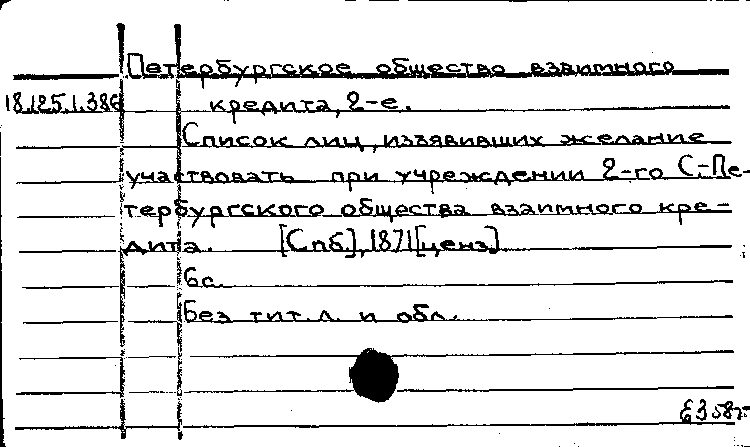 Петербургское общество взаимного
18.125.1.386 кредита, 2-е.
Список лиц, изъявивших желание
участвовать при учреждении 2-го С.-Пе-
тербургского общества взаимного кре-
дита. [Спб.], 1871 [ценз.]
6с.
Без тит. л. и обл.